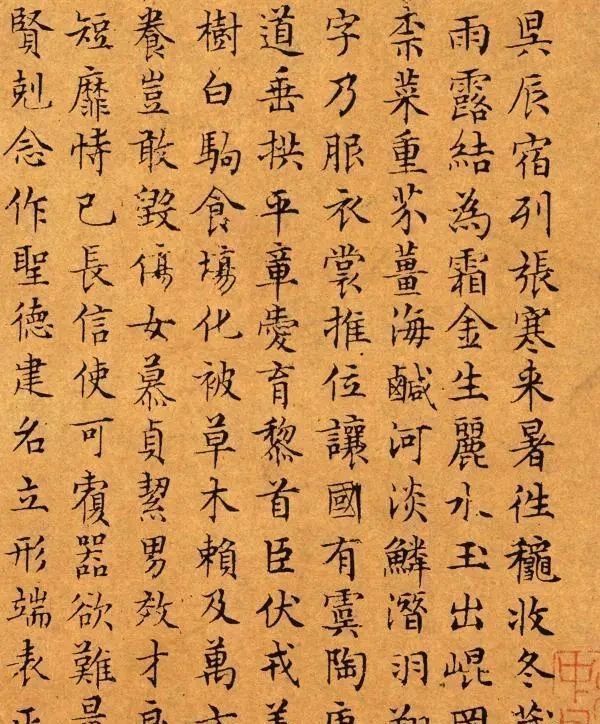 昃辰宿列張寒来暑徃穐收冬
雨露結為霜金生麗水玉出崐岡
柰菜重芥薑海鹹河淡鱗潛羽翔
字乃服衣裳推位讓國有虞陶唐
道垂拱平章愛育黎首臣伏戎羌
樹白駒食場化被草木賴及萬方
養豈敢毀傷女慕貞絜男效才良
短靡恃己長信使可覆器欲難量
賢剋念作聖德建名立形端表正